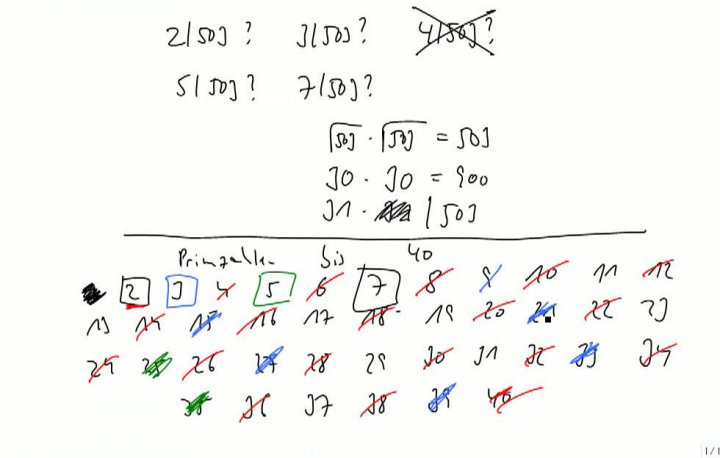 2|503? 3|503? 4|503?
5|503? 7|503?
√503 · √503 = 503
30 · 30 = 900
31 · | 503
Primzahlen bis 40
2 3 4 5 6 7 8 9 10 11 12
13 14 15 16 17 18 19 20 21 22 23
24 25 26 27 28 29 30 31 32 33 34
35 36 37 38 39 40
1/1